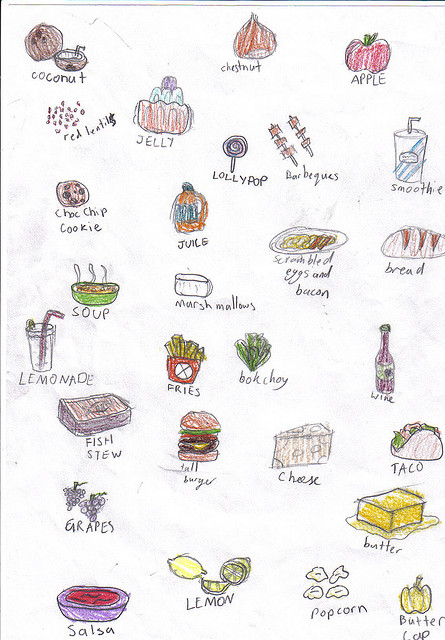 coconut
chestnut
APPLE
red lentils
JELLY
LOLLYPOP
Barbeques
smoothie
Choc Chip
Cookie
JUICE
scrambled
eggs and
bacon
bread
SOUP
marshmallows
LEMONADE
FRIES
bok choy
wine
FISH
STEW
tall
burger
Cheese
TACO
GRAPES
butter
LEMON
Popcorn
Butter
Salsa